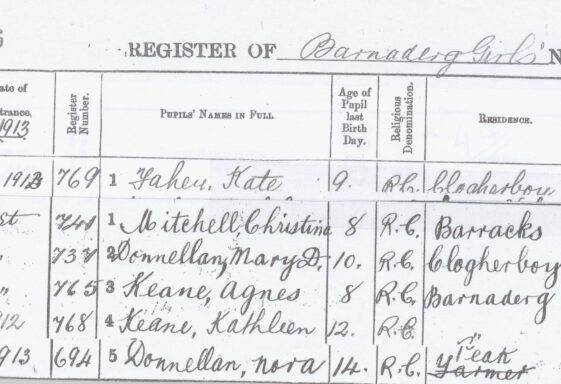 REGISTER OF Barnaderg Girls' N
ate of trance, 1913 Register Number. PUPILS' NAMES IN FULL Age of Pupil last Birth Day. Religious Denomination. RESIDENCE.
1913 769 1 Fahey, Kate 9. R.C. Clogherboy
st 741 1 Mitchell, Christina 8 R.C. Barracks
" 737 2 Donnellan, Mary D. 10. R.C. Clogherboy
" 765 3 Keane, Agnes 8 R.C. Barnaderg
912 768 4 Keane, Kathleen 12. R.C. "
913 694 5 Donnellan, Nora 14. R.C. Farmer